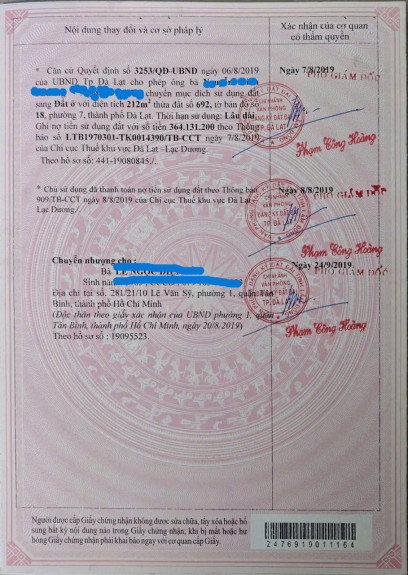 Nội dung thay đổi và cơ sở pháp lý
Xác nhận của cơ quan
có thẩm quyền
* Căn cứ Quyết định số 3253/QĐ-UBND ngày 06/8/2019
của UBND Tp Đà Lạt cho phép ông bà
chuyển mục đích sử dụng đất
sang Đất ở với diện tích 212m² thửa đất số 692, tờ bản đồ số
18, phường 7, thành phố Đà Lạt. Thời hạn sử dụng: Lâu dài.
Ghi nợ tiền sử dụng đất với số tiền 364.131.200 theo Thông
báo số LTB1970301-TK0014390/TB-CCT ngày 7/8/2019
của Chi cục Thuế khu vực Đà Lạt -Lạc Dương.
Theo hồ sơ số: 441-19080845./.
Ngày 7/8/2019
PHÓ GIÁM ĐỐC
CHI NHÁNH
VĂN PHÒNG
ĐĂNG KÝ ĐẤT ĐAI
TP. ĐÀ LẠT
Phạm Công Hoàng
* Chủ sử dụng đã thanh toán nợ tiền sử dụng đất theo Thông báo
909/TB-CCT ngày 8/8/2019 của Chi cục Thuế khu vực Đà Lạt -
Lạc Dương./.
Ngày 8/8/2019
PHÓ GIÁM ĐỐC
CHI NHÁNH
VĂN PHÒNG
ĐĂNG KÝ ĐẤT ĐAI
TP. ĐÀ LẠT
Phạm Công Hoàng
Chuyển nhượng cho :
Bà LÊ NGỌC
Sinh năm
Địa chỉ tại số. 281/21/10 Lê Văn Sỹ, phường 1, quận Tân
Bình, thành phố Hồ Chí Minh
(Độc thân theo giấy xác nhận của UBND phường 1, quận
Tân Bình, thành phố Hồ Chí Minh, ngày 20/8/2019)
Theo hồ sơ số : 19095523.
Ngày 24/9/2019
PHÓ GIÁM ĐỐC
CHI NHÁNH
VĂN PHÒNG
ĐĂNG KÝ ĐẤT ĐAI
TP. ĐÀ LẠT
Phạm Công Hoàng
Người được cấp Giấy chứng nhận không được sửa chữa, tẩy xóa hoặc bổ
sung bất kỳ nội dung nào trong Giấy chứng nhận; khi bị mất hoặc hư
hỏng Giấy chứng nhận phải khai báo ngay với cơ quan cấp Giấy.
2476919011164